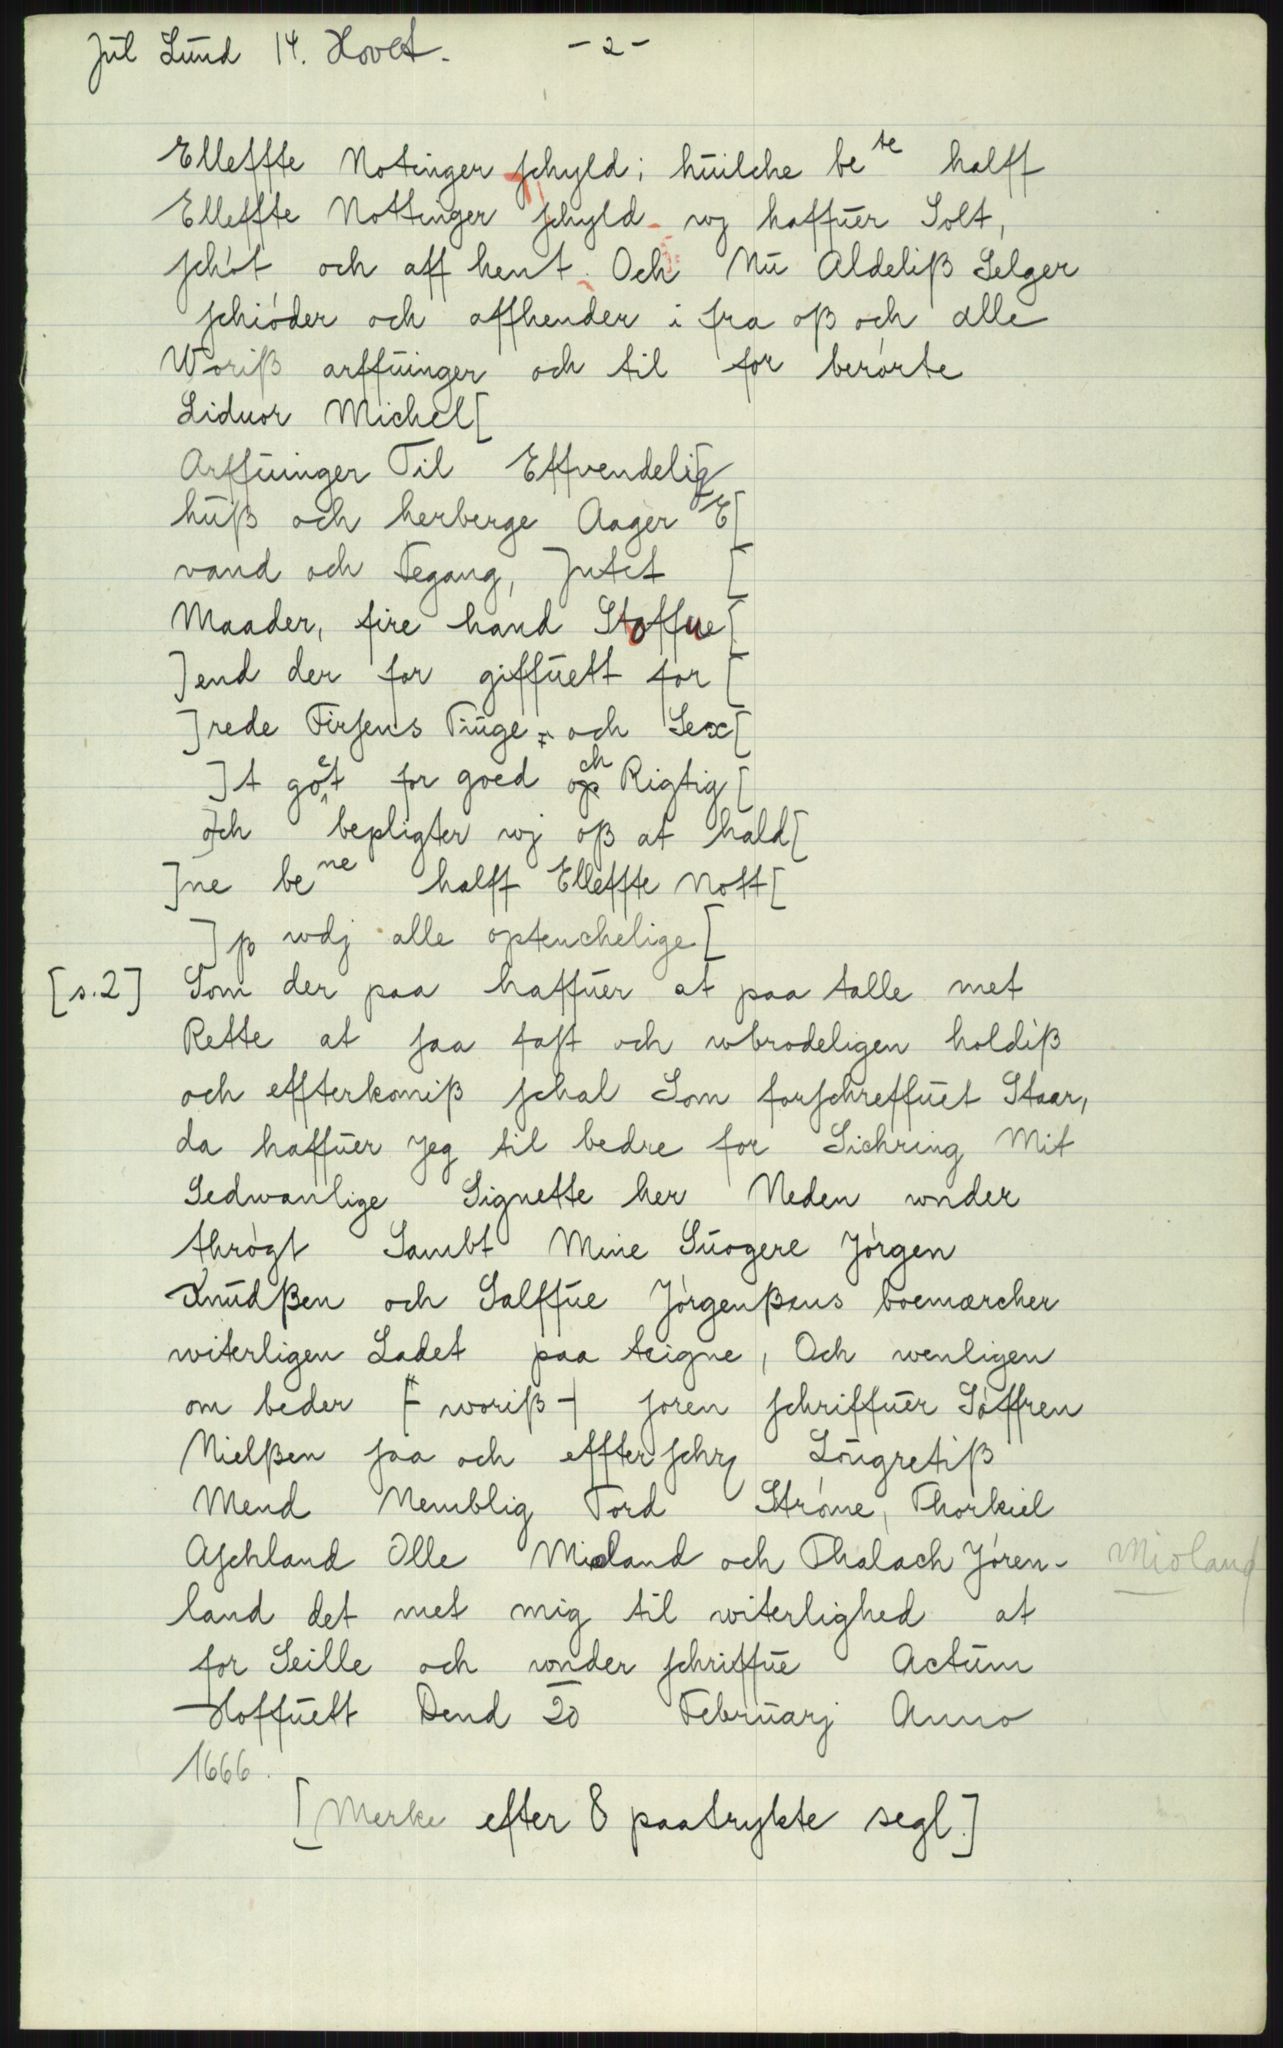 Jul Lund 14. Hovet. - 2 -
Elleffte Notinger schyld; huilche be te halff
Elleffte Nottinger schyld wj haffuer Solt,
schöt och aff hent. Och Nu Aldeliß Selger
schiöder och affhender i fra oß och alle
Woriß arffuinger och til for berörte
Liduor Michel[
Arffuinger Til Effvendelig
huß och herberge Aager E[
vand och Fegang, Jntet [
Maader, fire hand Stoffue[
]end der for giffuett for [
]rede Firsens Tiuge, och Sex[
]t goet for goed och Rigtig[
och bepligter wj oß at hald[
]ne be ne halff Elleffte Nott[
]ß wdj alle optenchelige[
[s.2] Som der paa haffuer at paa talle met
Rette at saa fast och wbrodeligen holdiß
och effterkomiß schal Som forschreffuet Staar,
da haffuer Jeg til bedre for Sichring Mit
Sedwanlige Signette her Neden wnder
thrögt Sambt Mine Suogere Jörgen
Knudßen och Salffue Jörgenßens boemærcher
witerligen Ladet paa teigne, Och wenligen
om beder [- woriß -] soren schriffuer Söffren
Nielßen saa och effterschr Lougretiß
Mend Nemblig Tord Ströme, Thorkiel
Aschland Olle Mioland och Thalach Jören- Mioland
land det met mig til witerlighed at
for Seille och wnder schriffue Actum
Hoffuett Dend 20 Februarj Anno
1666.
[Merke efter 8 paatrykte segl.]